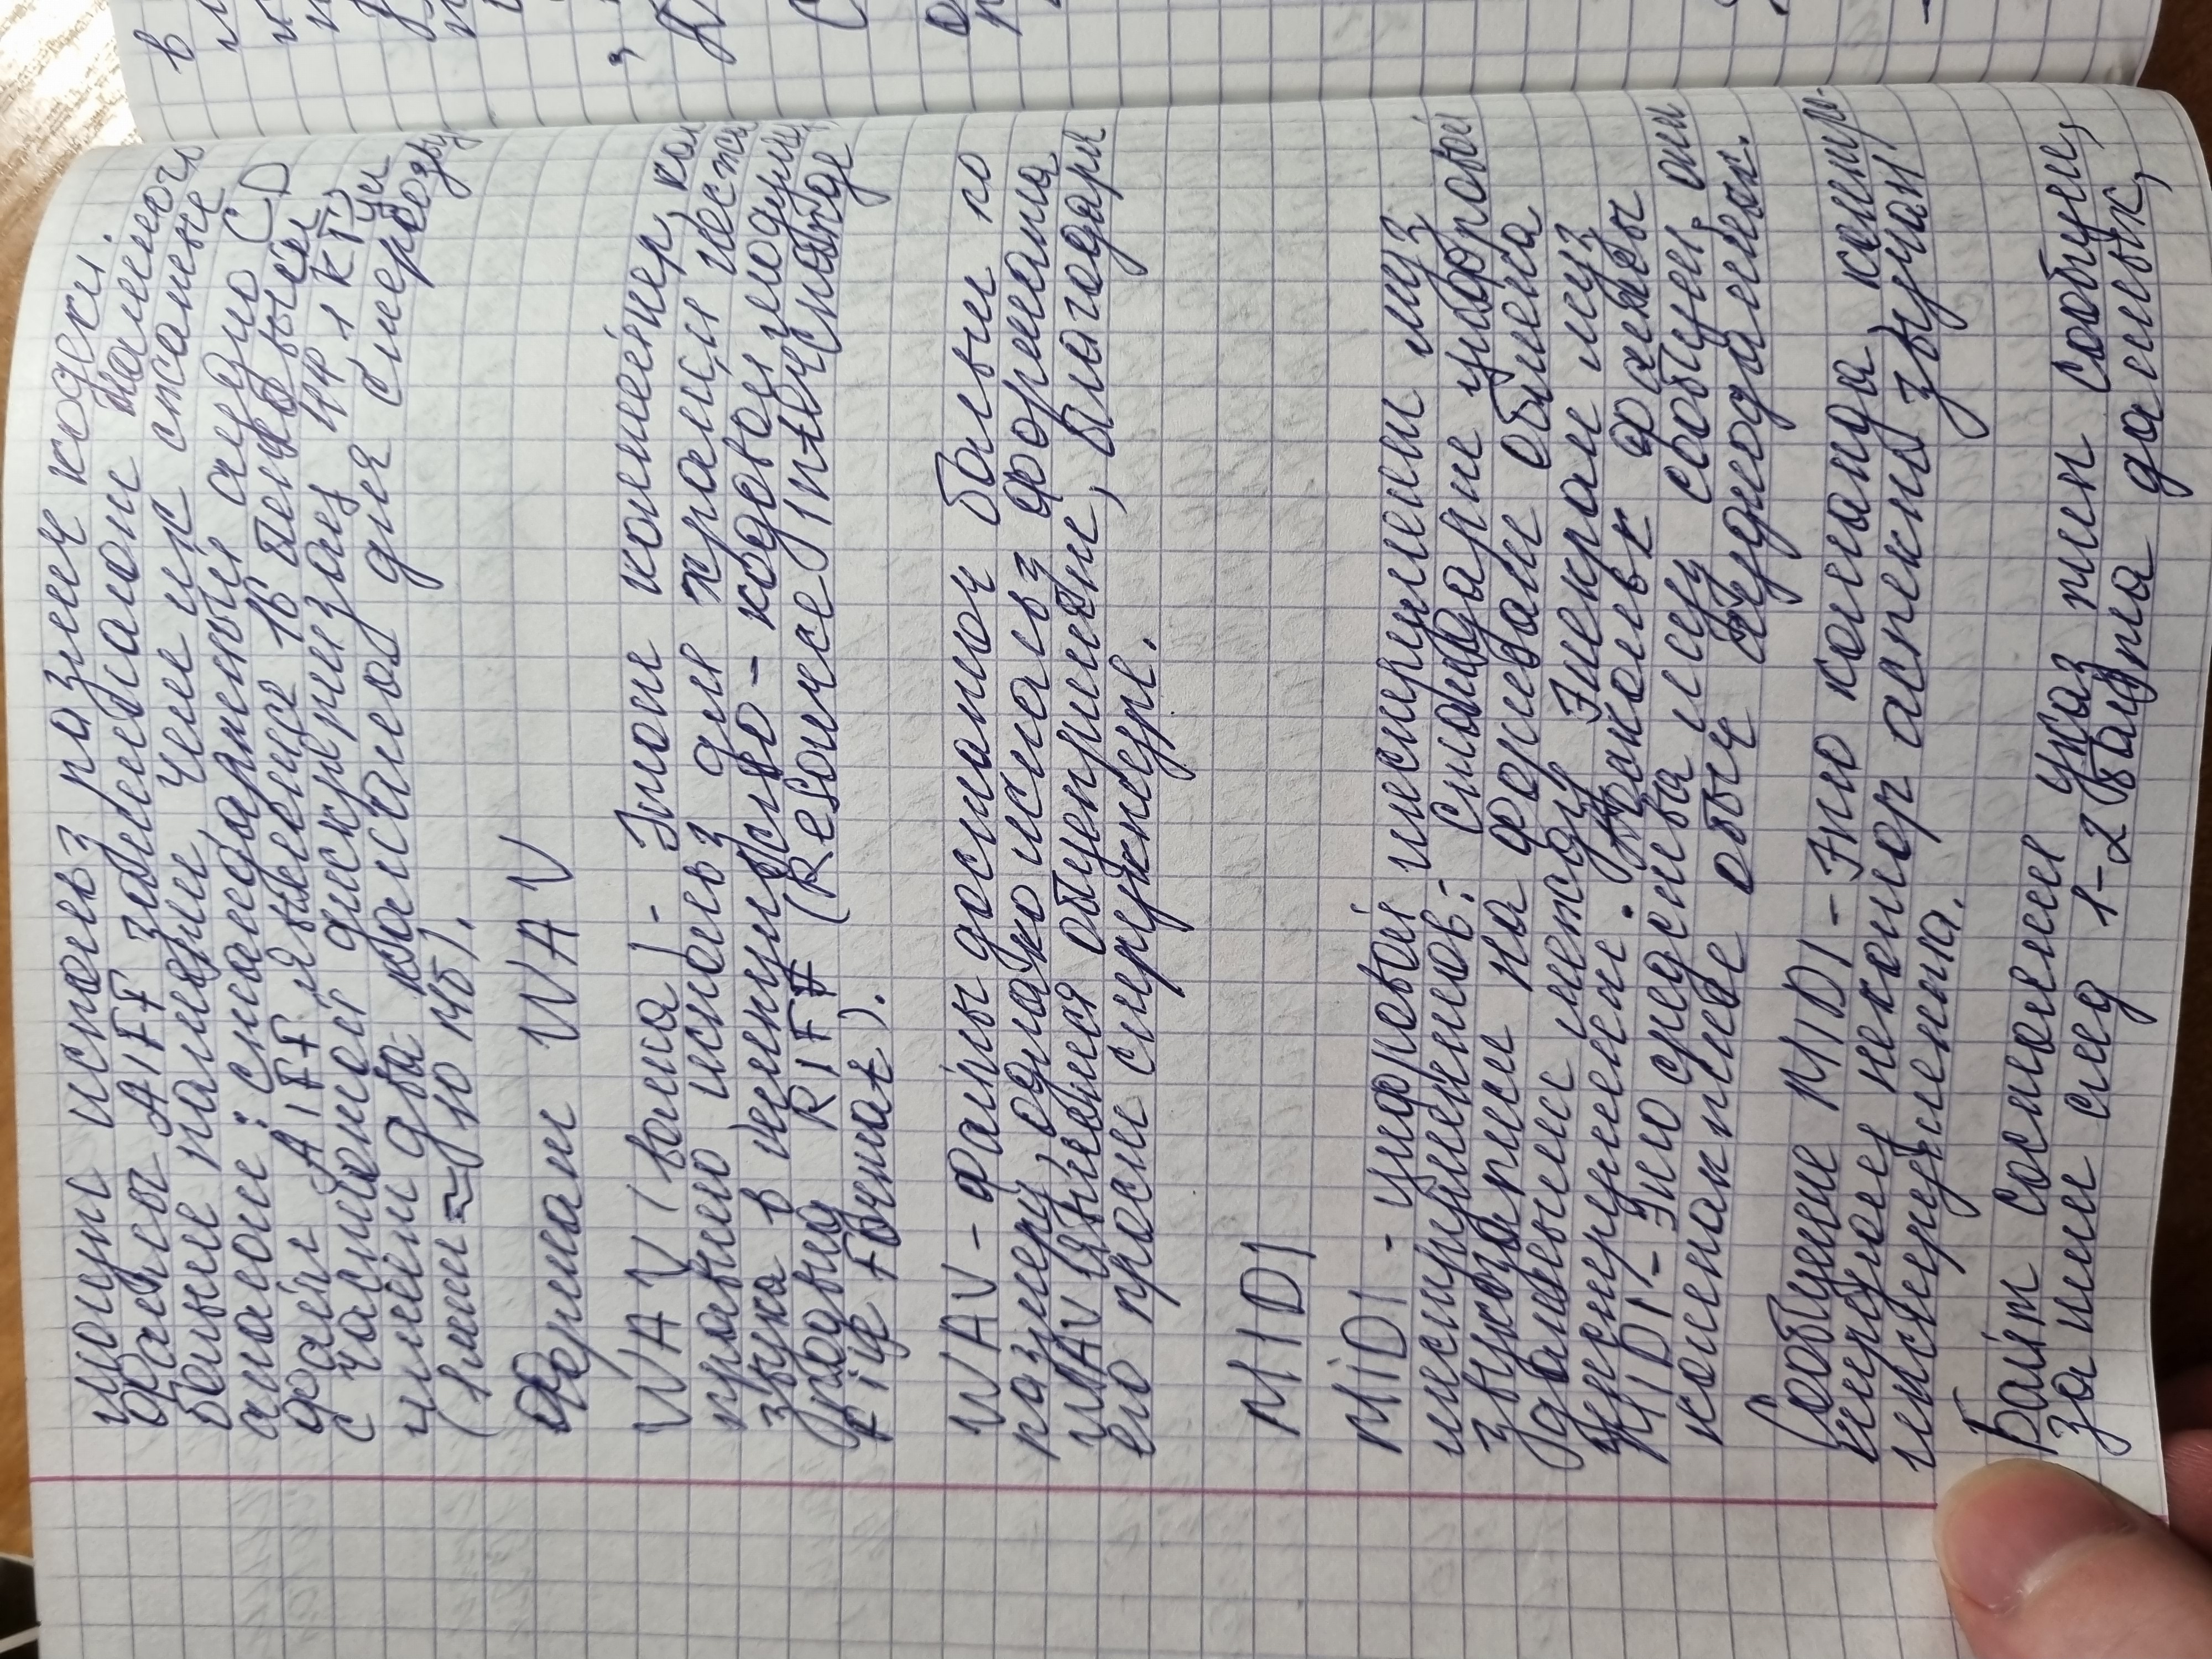 могут использ различ кодеки.
Файлы AIFF занимают намного
больше памяти, чем их сжатые
аналоги: стандартный аудио CD
файл AIFF является 16 битовым,
с частотой дискретизац 44,1 КГц и
имеет два канала для стереозву
(1 мин ≈ 10 Мб).
Формат WAV
WAV (волна) - Этот контейнер, как
правило, использ для хранен несжа
звука в импульсно-кодовой модуляц
подвид RIFF (Resource Interchange
File Format).
WAV-файлы достаточ больш по
размеру, однако использ формата
WAV является общепринят, благодаря
его прост структуре.
MIDI
MIDI - цифровой инструмент муз
инструментов: стандарт цифровой
звукозаписи на формат обмена
данными между электрон муз
инструмент. Поскольк файлы
MIDI - это средства муз сообщен, они
компактнее обыч аудиоданных.
Сообщение MIDI - это команда, контро-
лирующ некотор аспекты звучан
инструмента.
Байт состояния указ тип сообщен,
за ним след 1-2 байта данных,
в